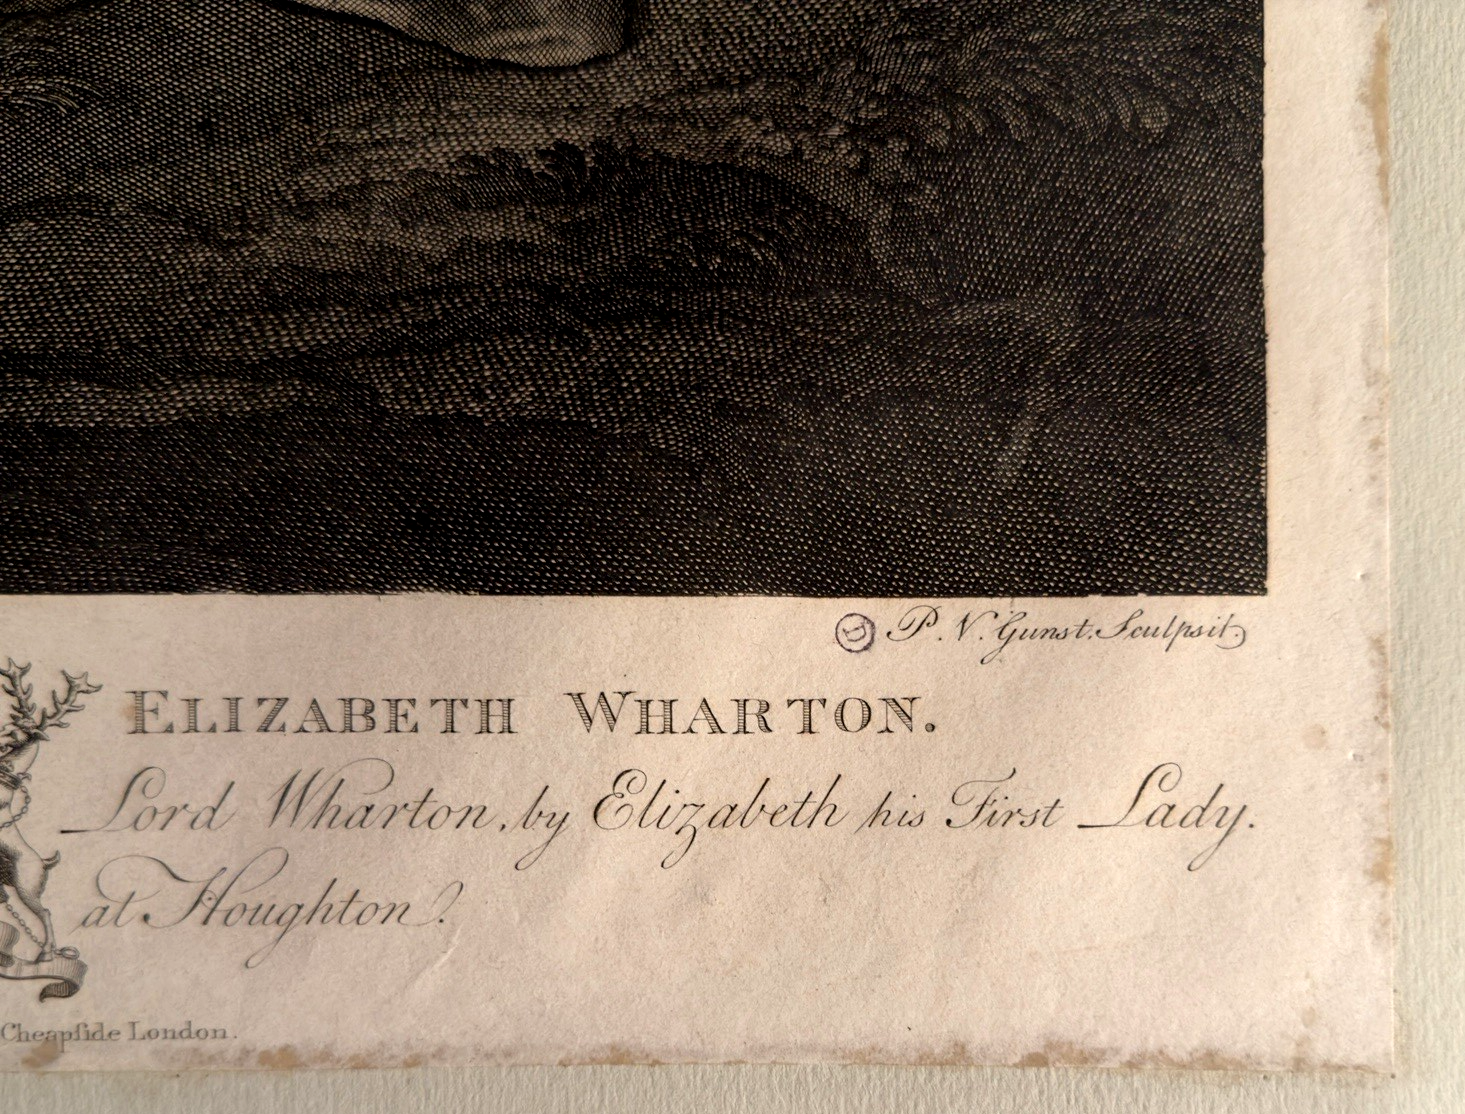 P. V. Gunst. Sculpsit.
ELIZABETH WHARTON.
Lord Wharton, by Elizabeth his First Lady.
at Houghton.
Cheapſide London.